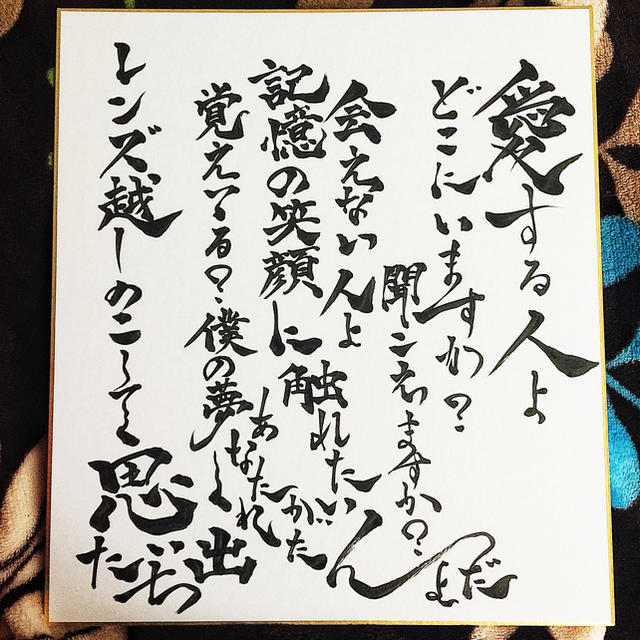 愛する人よ
どこにいますか?
聞こえますか?
会えない人よ
記憶の笑顔に
触れたいんだよ
覚えてる?僕の夢
レンズ越しのこしてく
思い出